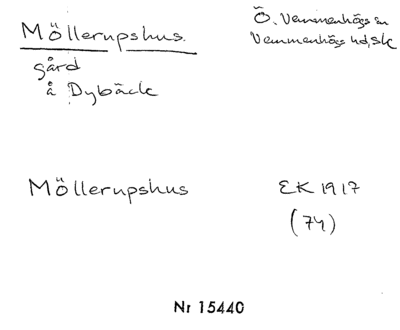 Möllerupshus.
gård
å Dybäck
Ö. Vemmenhögs sn
Vemmenhögs hd, Sk
Möllerupshus
EK 1917
(74)
Nr 15440